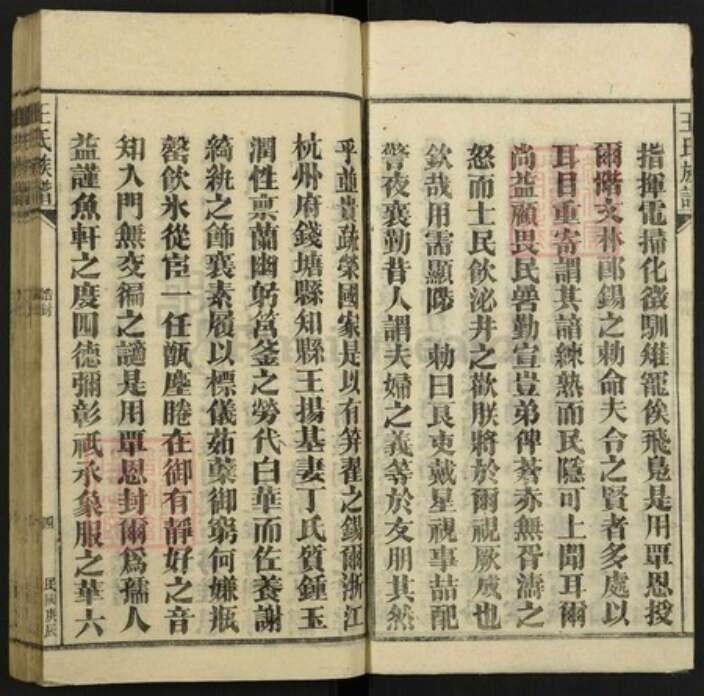 王氏族譜
指揮電掃化徵馴雉寵俟飛鳧是用覃恩授
爾階文林郎錫之勅命夫令之賢者多處以
耳目重寄謂其諳練熟而民隱可上聞耳爾
尚益顧畏民喦勤宣豈弟俾蒼赤無胥濤之
怒而士民飲泌井之歡朕將於爾視厥成也
欽哉用需顯陟 勅曰良吏戴星視事喆配
警夜襄勤昔人謂夫婦之義等於友朋其然
乎並貴疏榮國家是以有笄翟之錫爾浙江
杭州府錢塘縣知縣王揚基妻丁氏質鍾玉
潤性禀蘭幽躬筥釜之勞代白華而佐養謝
綺紈之飾襄素履以標儀茹蘗御窮何嫌瓶
罄飲氷從宦一任甑塵睠在御有靜好之音
知入門無交徧之讁是用覃恩封爾爲孺人
益謹魚軒之度四德彌彰祇承象服之華六
王氏族譜
誥封
四
民國庚辰